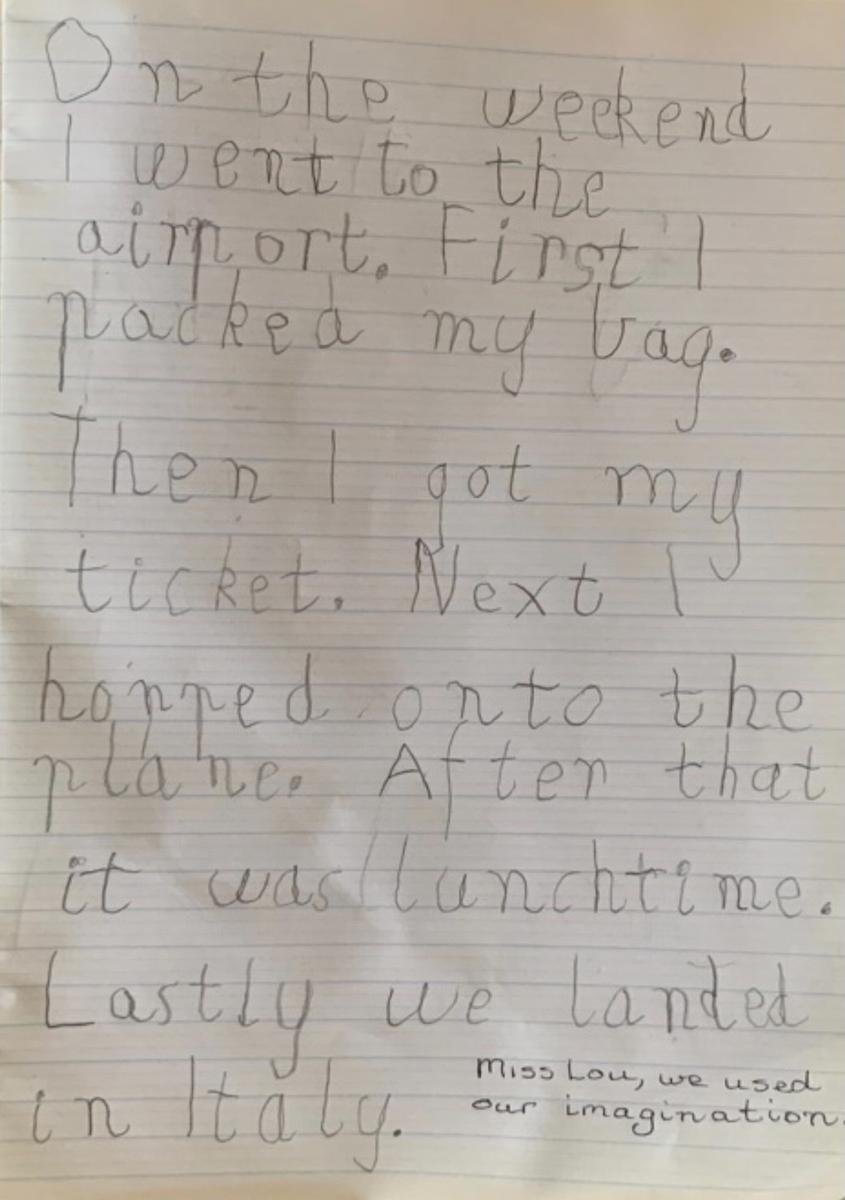 On the weekend
I went to the
airport. First I
packed my bag.
Then I got my
ticket. Next I
hopped onto the
plane. After that
it was lunchtime.
Lastly we landed
in Italy.
Miss Lou, we used
our imagination.